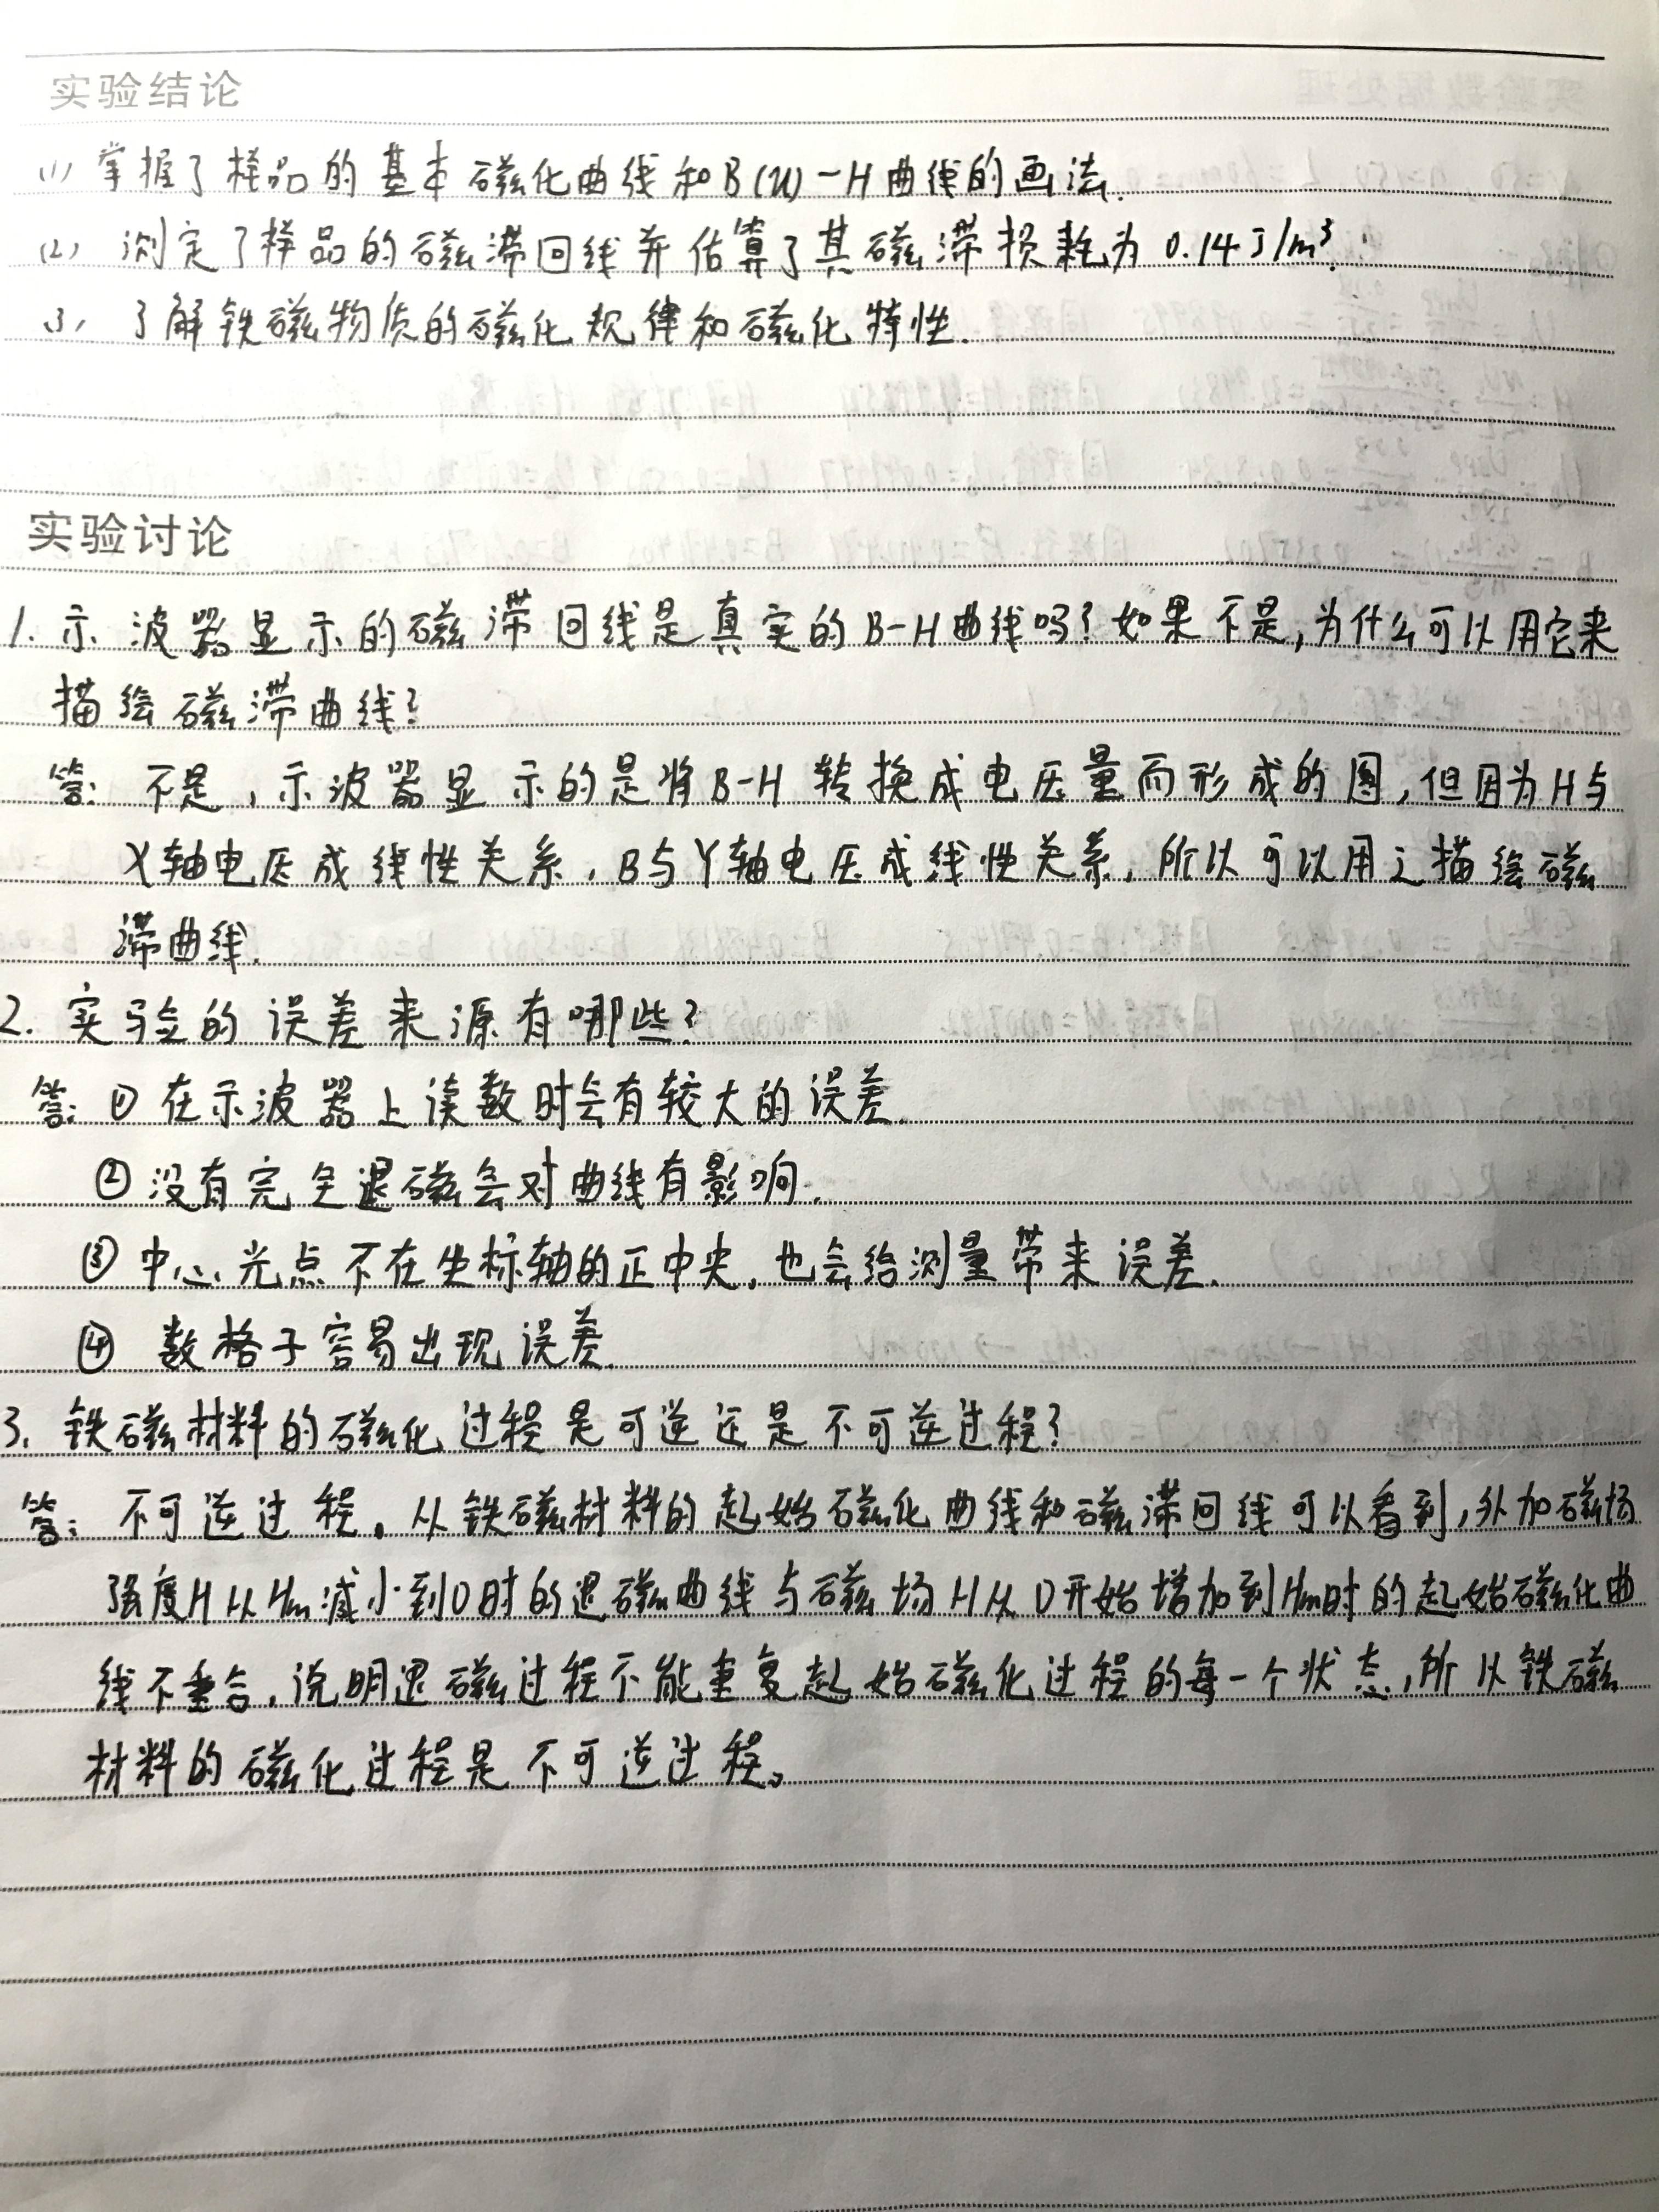 实验结论
(1) 掌握了样品的基本磁化曲线和B(u)-H曲线的画法.
(2) 测定了样品的磁滞回线并估算了其磁滞损耗为 0.14J/m³.
3, 了解铁磁物质的磁化规律和磁化特性.
实验讨论
1. 示波器显示的磁滞回线是真实的B-H曲线吗?如果不是,为什么可以用它来
描绘磁滞曲线?
答: 不是,示波器显示的是将B-H转换成电压量而形成的图,但因为H与
X轴电压成线性关系,B与Y轴电压成线性关系,所以可以用之描绘磁
滞曲线.
2. 实验的误差来源有哪些?
答: ①在示波器上读数时会有较大的误差.
②没有完全退磁会对曲线有影响.
③中心光点不在坐标轴的正中央,也会给测量带来误差.
④ 数格子容易出现误差.
3. 铁磁材料的磁化过程是可逆还是不可逆过程?
答: 不可逆过程。从铁磁材料的起始磁化曲线和磁滞回线可以看到,外加磁场
强度H从Hm减小到0时的退磁曲线与磁场H从0开始增加到Hm时的起始磁化曲
线不重合,说明退磁过程不能重复起始磁化过程的每一个状态,所以铁磁
材料的磁化过程是不可逆过程。